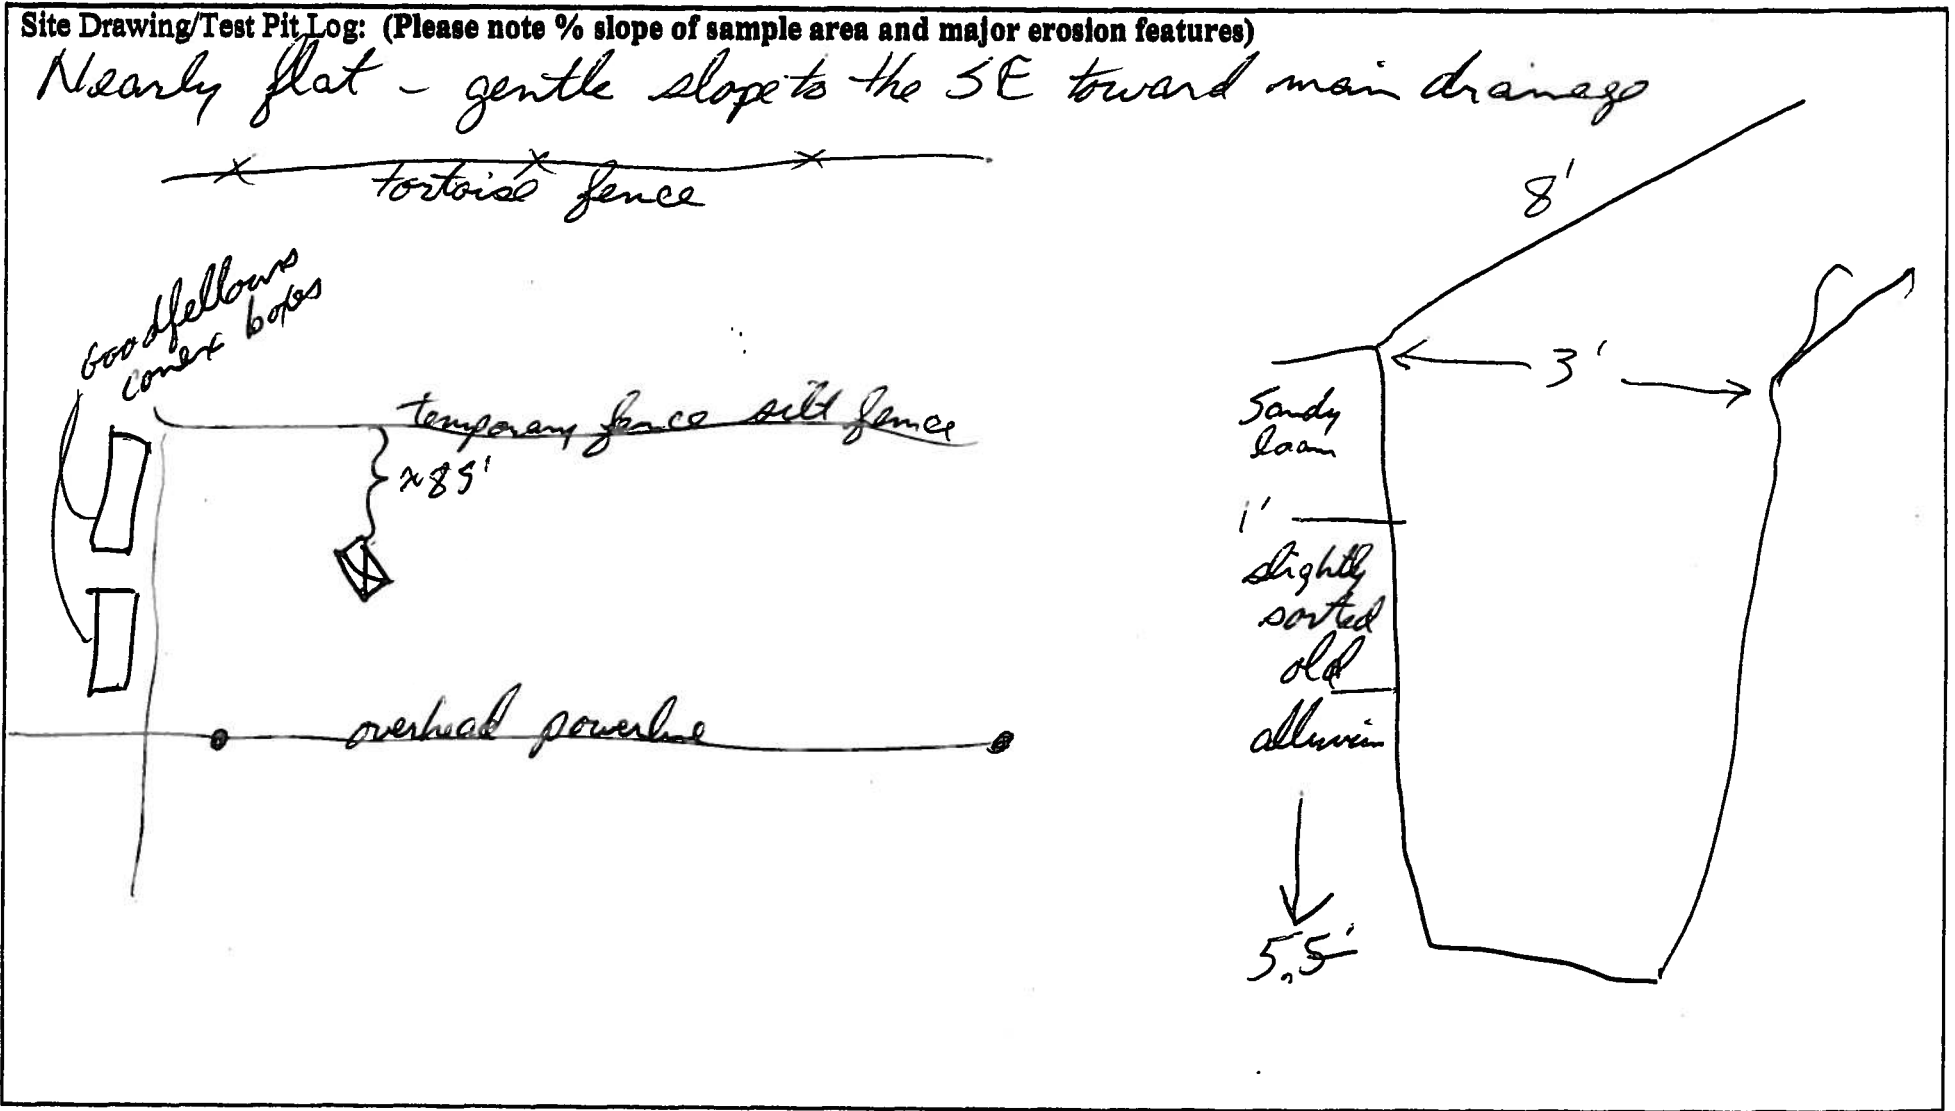 Site Drawing/Test Pit Log: (Please note % slope of sample area and major erosion features)
Nearly flat - gentle slope to the SE toward main drainage
tortoise fence
Goodfellows
conex boxes
temporary fence silt fence
≈85'
overhead powerline
8'
3'
Sandy
loam
1'
slightly
sorted
old
alluvium
5.5'